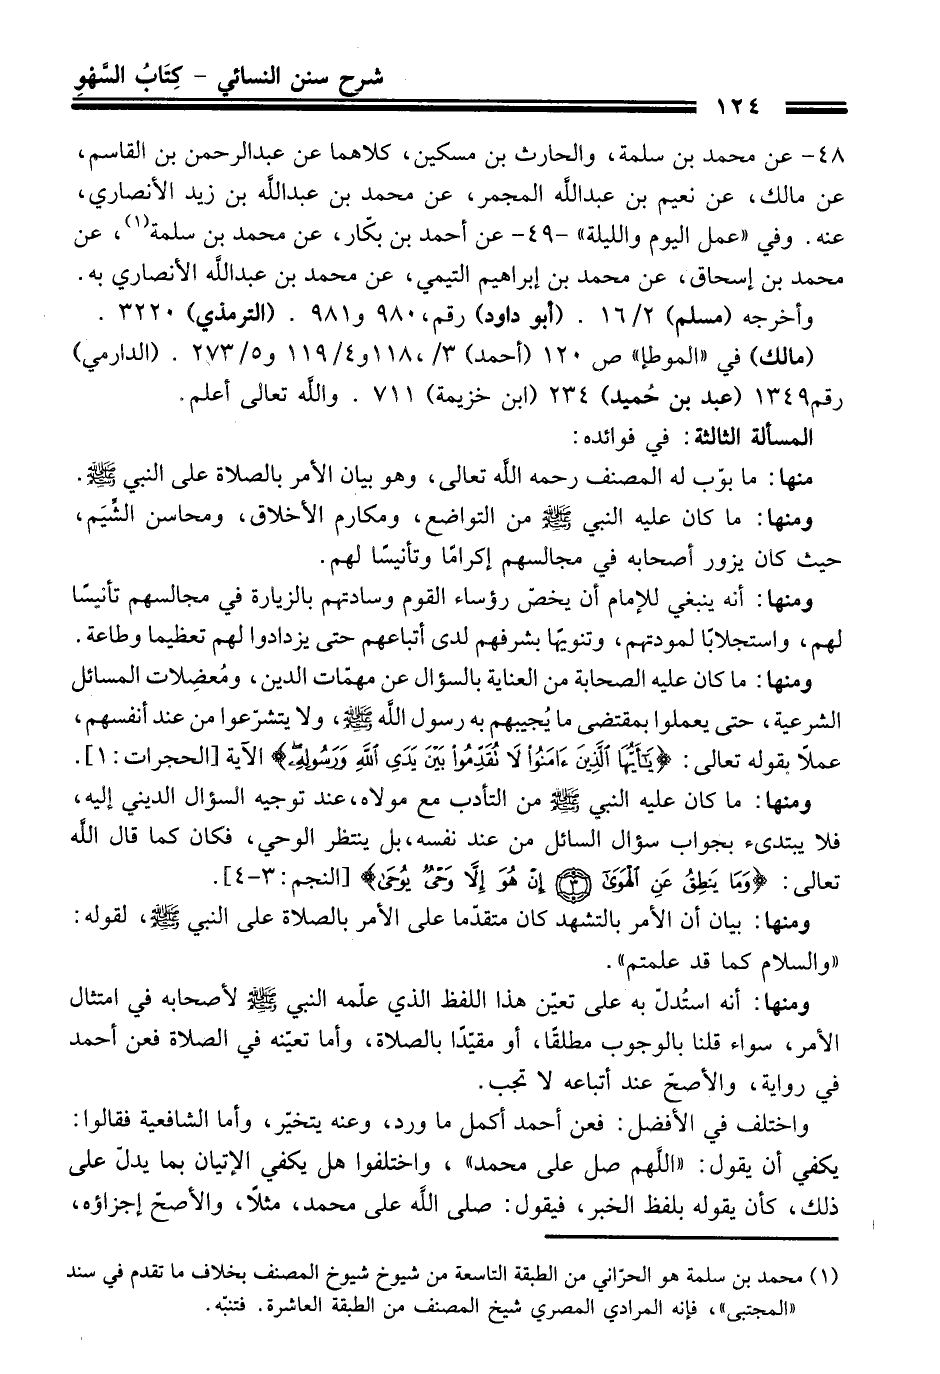 شرح سنن النسائي - كِتَابُ السَّهْوِ
١٢٤
٤٨- عن محمد بن سلمة، والحارث بن مسكين، كلاهما عن عبدالرحمن بن القاسم،
عن مالك، عن نعيم بن عبدالله المجمر، عن محمد بن عبدالله بن زيد الأنصاري،
عنه. وفي «عمل اليوم والليلة» -٤٩- عن أحمد بن بكّار، عن محمد بن سلمة(١)، عن
محمد بن إسحاق، عن محمد بن إبراهيم التيمي، عن محمد بن عبدالله الأنصاري به.
وأخرجه (مسلم) ١٦/٢ . (أبو داود) رقم، ٩٨٠ و٩٨١ . (الترمذي) ٣٢٢٠ .
(مالك) في «الموطإ» ص ١٢٠ (أحمد) ٣/ ،١١٨و١١٩/٤ و٢٧٣/٥ . (الدارمي)
رقم١٣٤٩ (عبد بن حُميد) ٢٣٤ (ابن خزيمة) ٧١١ . والله تعالى أعلم.
المسألة الثالثة: في فوائده:
منها: ما بوّب له المصنف رحمه الله تعالى، وهو بيان الأمر بالصلاة على النبي ﷺ.
ومنها: ما كان عليه النبي ﷺ من التواضع، ومكارم الأخلاق، ومحاسن الشِّيَم،
حيث كان يزور أصحابه في مجالسهم إكرامًا وتأنيسًا لهم.
ومنها: أنه ينبغي للإمام أن يخصّ رؤساء القوم وسادتهم بالزيارة في مجالسهم تأنيسًا
لهم، واستجلابًا لمودتهم، وتنويهًا بشرفهم لدى أتباعهم حتى يزدادوا لهم تعظيما وطاعة.
ومنها: ما كان عليه الصحابة من العناية بالسؤال عن مهمّات الدين، ومُعضِلات المسائل
الشرعية، حتى يعملوا بمقتضى ما يُجيبهم به رسول الله ﷺ، ولا يتشرّعوا من عند أنفسهم،
عملًا بقوله تعالى: ﴿يَٰٓأَيُّهَا ٱلَّذِينَ ءَامَنُوا۟ لَا تُقَدِّمُوا۟ بَيْنَ يَدَىِ ٱللَّهِ وَرَسُولِهِۦ﴾ الآية [الحجرات: ١].
ومنها: ما كان عليه النبي ﷺ من التأدب مع مولاه،عند توجيه السؤال الديني إليه،
فلا يبتدىء بجواب سؤال السائل من عند نفسه،بل ينتظر الوحي، فكان كما قال الله
تعالى: ﴿وَمَا يَنطِقُ عَنِ ٱلْهَوَىٰٓ ۝٣ إِنْ هُوَ إِلَّا وَحْىٌ يُوحَىٰ﴾ [النجم: ٣-٤].
ومنها: بيان أن الأمر بالتشهد كان متقدّما على الأمر بالصلاة على النبي ﷺ، لقوله:
«والسلام كما قد علمتم».
ومنها: أنه استُدلّ به على تعيّن هذا اللفظ الذي علّمه النبي ﷺ لأصحابه في امتثال
الأمر، سواء قلنا بالوجوب مطلقًا، أو مقيّدًا بالصلاة، وأما تعيّنه في الصلاة فعن أحمد
في رواية، والأصحّ عند أتباعه لا تجب.
واختلف في الأفضل: فعن أحمد أكمل ما ورد، وعنه يتخيّر، وأما الشافعية فقالوا:
يكفي أن يقول: «اللهم صل على محمد» ، واختلفوا هل يكفي الإتيان بما يدلّ على
ذلك، كأن يقوله بلفظ الخبر، فيقول: صلى الله على محمد، مثلًا، والأصحّ إجزاؤه،
(١) محمد بن سلمة هو الحرّاني من الطبقة التاسعة من شيوخ شيوخ المصنف بخلاف ما تقدم في سند
«المجتبى»، فإنه المرادي المصري شيخ المصنف من الطبقة العاشرة. فتنبّه.